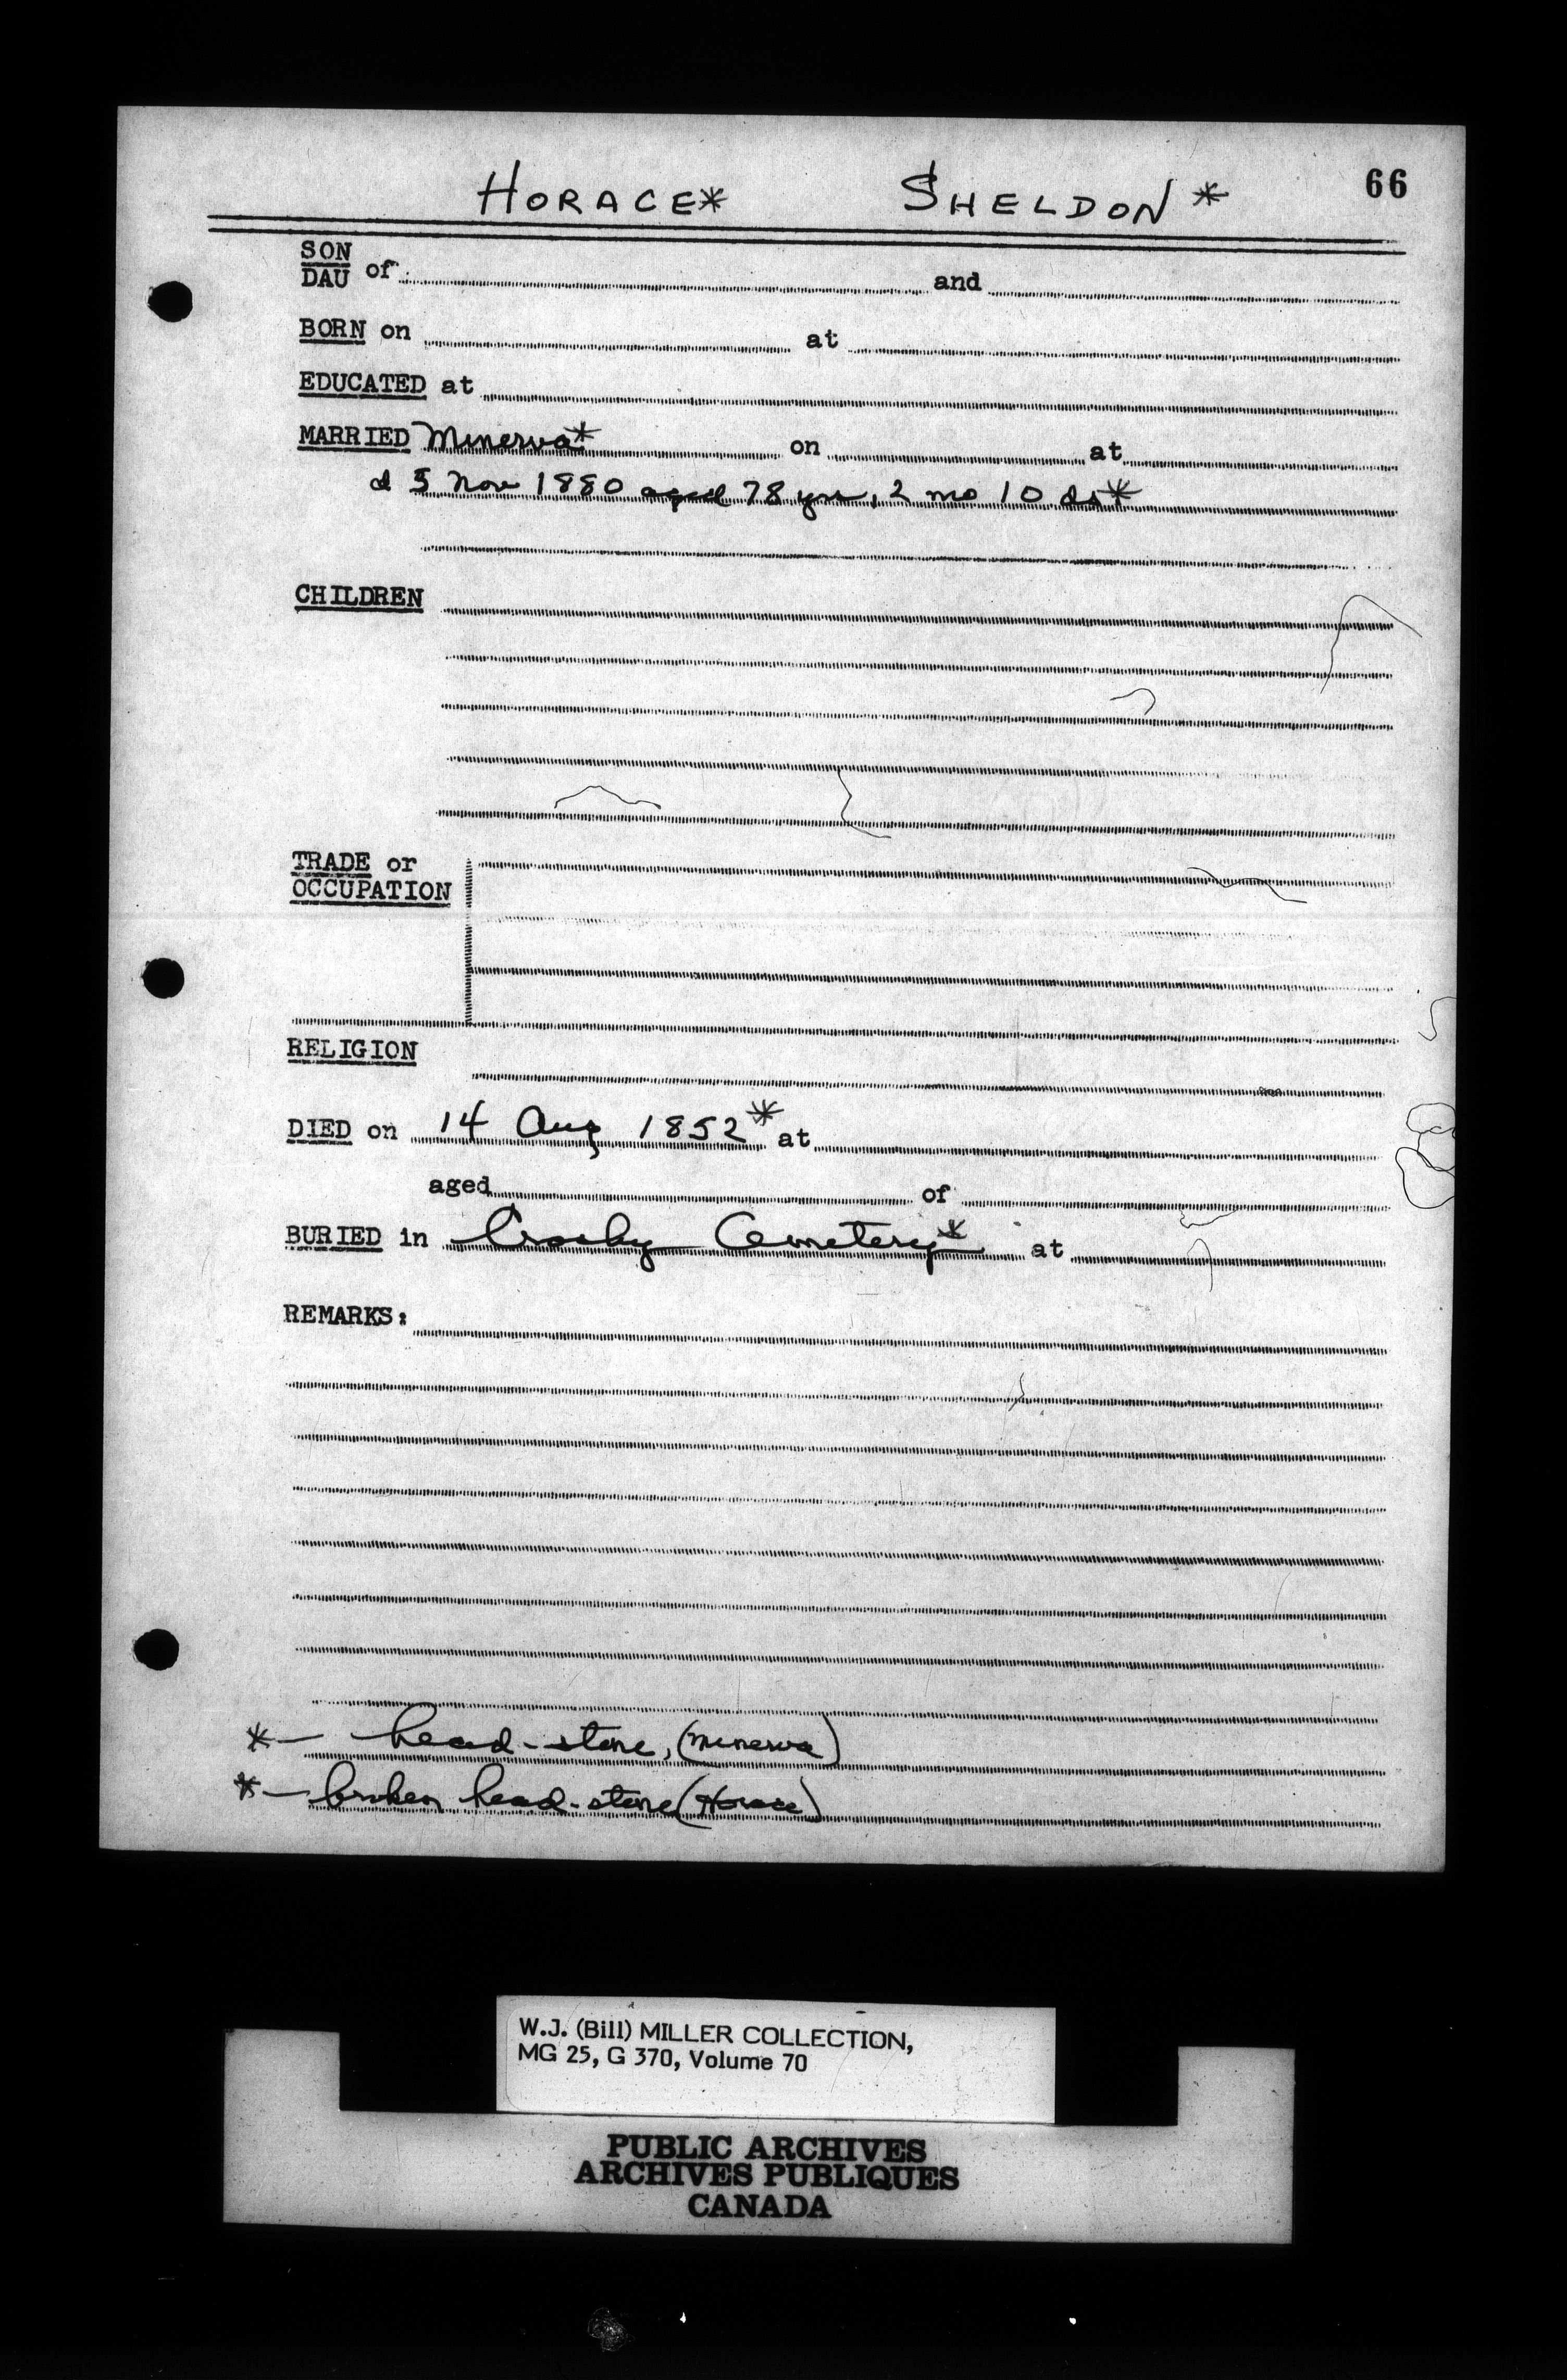 HORACE* SHELDON* 66
SON
DAU of and
BORN on at
EDUCATED at
MARRIED Minerva* on at
d 5 Nov 1880 aged 78 yrs, 2 mo 10 ds*
CHILDREN
TRADE or
OCCUPATION
RELIGION
DIED on 14 Aug 1852* at
aged of
BURIED in Crosby Cemetery* at
REMARKS:
*— head-stone, (Minerva)
*— broken head-stone (Horace)
W.J. (Bill) MILLER COLLECTION,
MG 25, G 370, Volume 70
PUBLIC ARCHIVES
ARCHIVES PUBLIQUES
CANADA